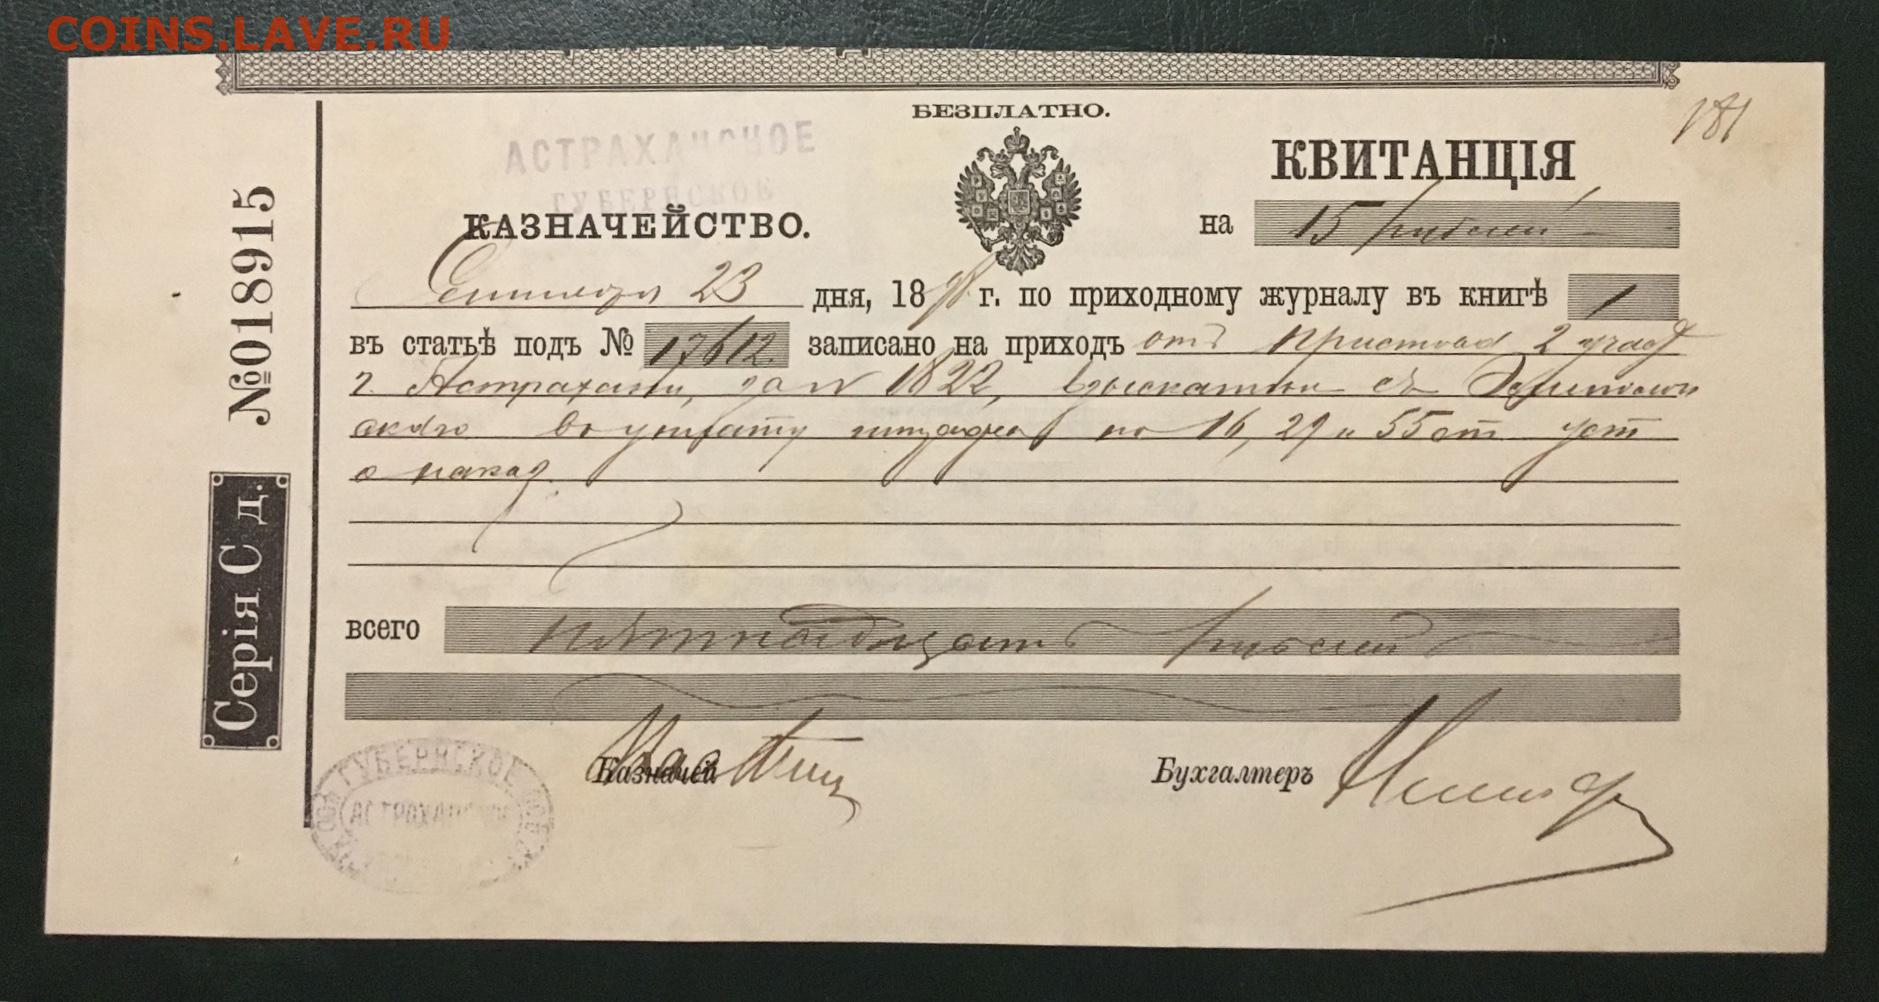 COINS.LAVE.RU
БЕЗПЛАТНО.
181
АСТРАХАНСКОЕ
ГУБЕРНСКОЕ
КАЗНАЧЕЙСТВО.
КВИТАНЦІЯ
на 15 рублей
Сентября 23 дня, 1898 г. по приходному журналу въ книгѣ 1
въ статьѣ подъ № 17612. записано на приходъ отъ Пристава 2 участ
г. Астрахани, за № 1822, взысканные съ
въ уплату штрафа по 16, 29 и 55 ст. уст
о наказ.
всего пятнадцать рублей
Казначей
Бухгалтеръ
№018915
Серія С д.
ГУБЕРНСКОЕ
АСТРАХАНСКОЕ